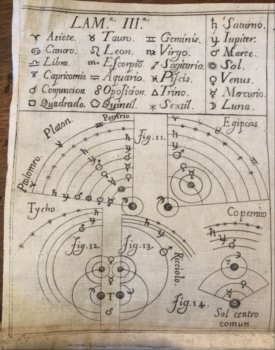 LAM.ª III.ª
♈ Ariete. ♉ Tauro. ♊ Geminis.
♋ Cancro. ♌ Leon. ♍ Virgo.
♎ Libra. ♏ Escorpio. ♐ Sagitario.
♑ Capricornio ♒ Aquario. ♓ Piscis.
☌ Conjuncion. ☍ Oposicion. △ Trino.
□ Quadrado. ⬠ Quintil. ⚹ Sextil.
♄ Saturno.
♃ Iupiter.
♂ Marte.
☉ Sol.
♀ Venus.
☿ Mercurio.
☽ Luna.
Ptolomeo.
Platon.
Porfirio
fig. 11.
Egipcios
Tycho
fig. 12.
T
fig. 13.
Ricciolo.
Copernico
fig. 14.
Sol centro
comun